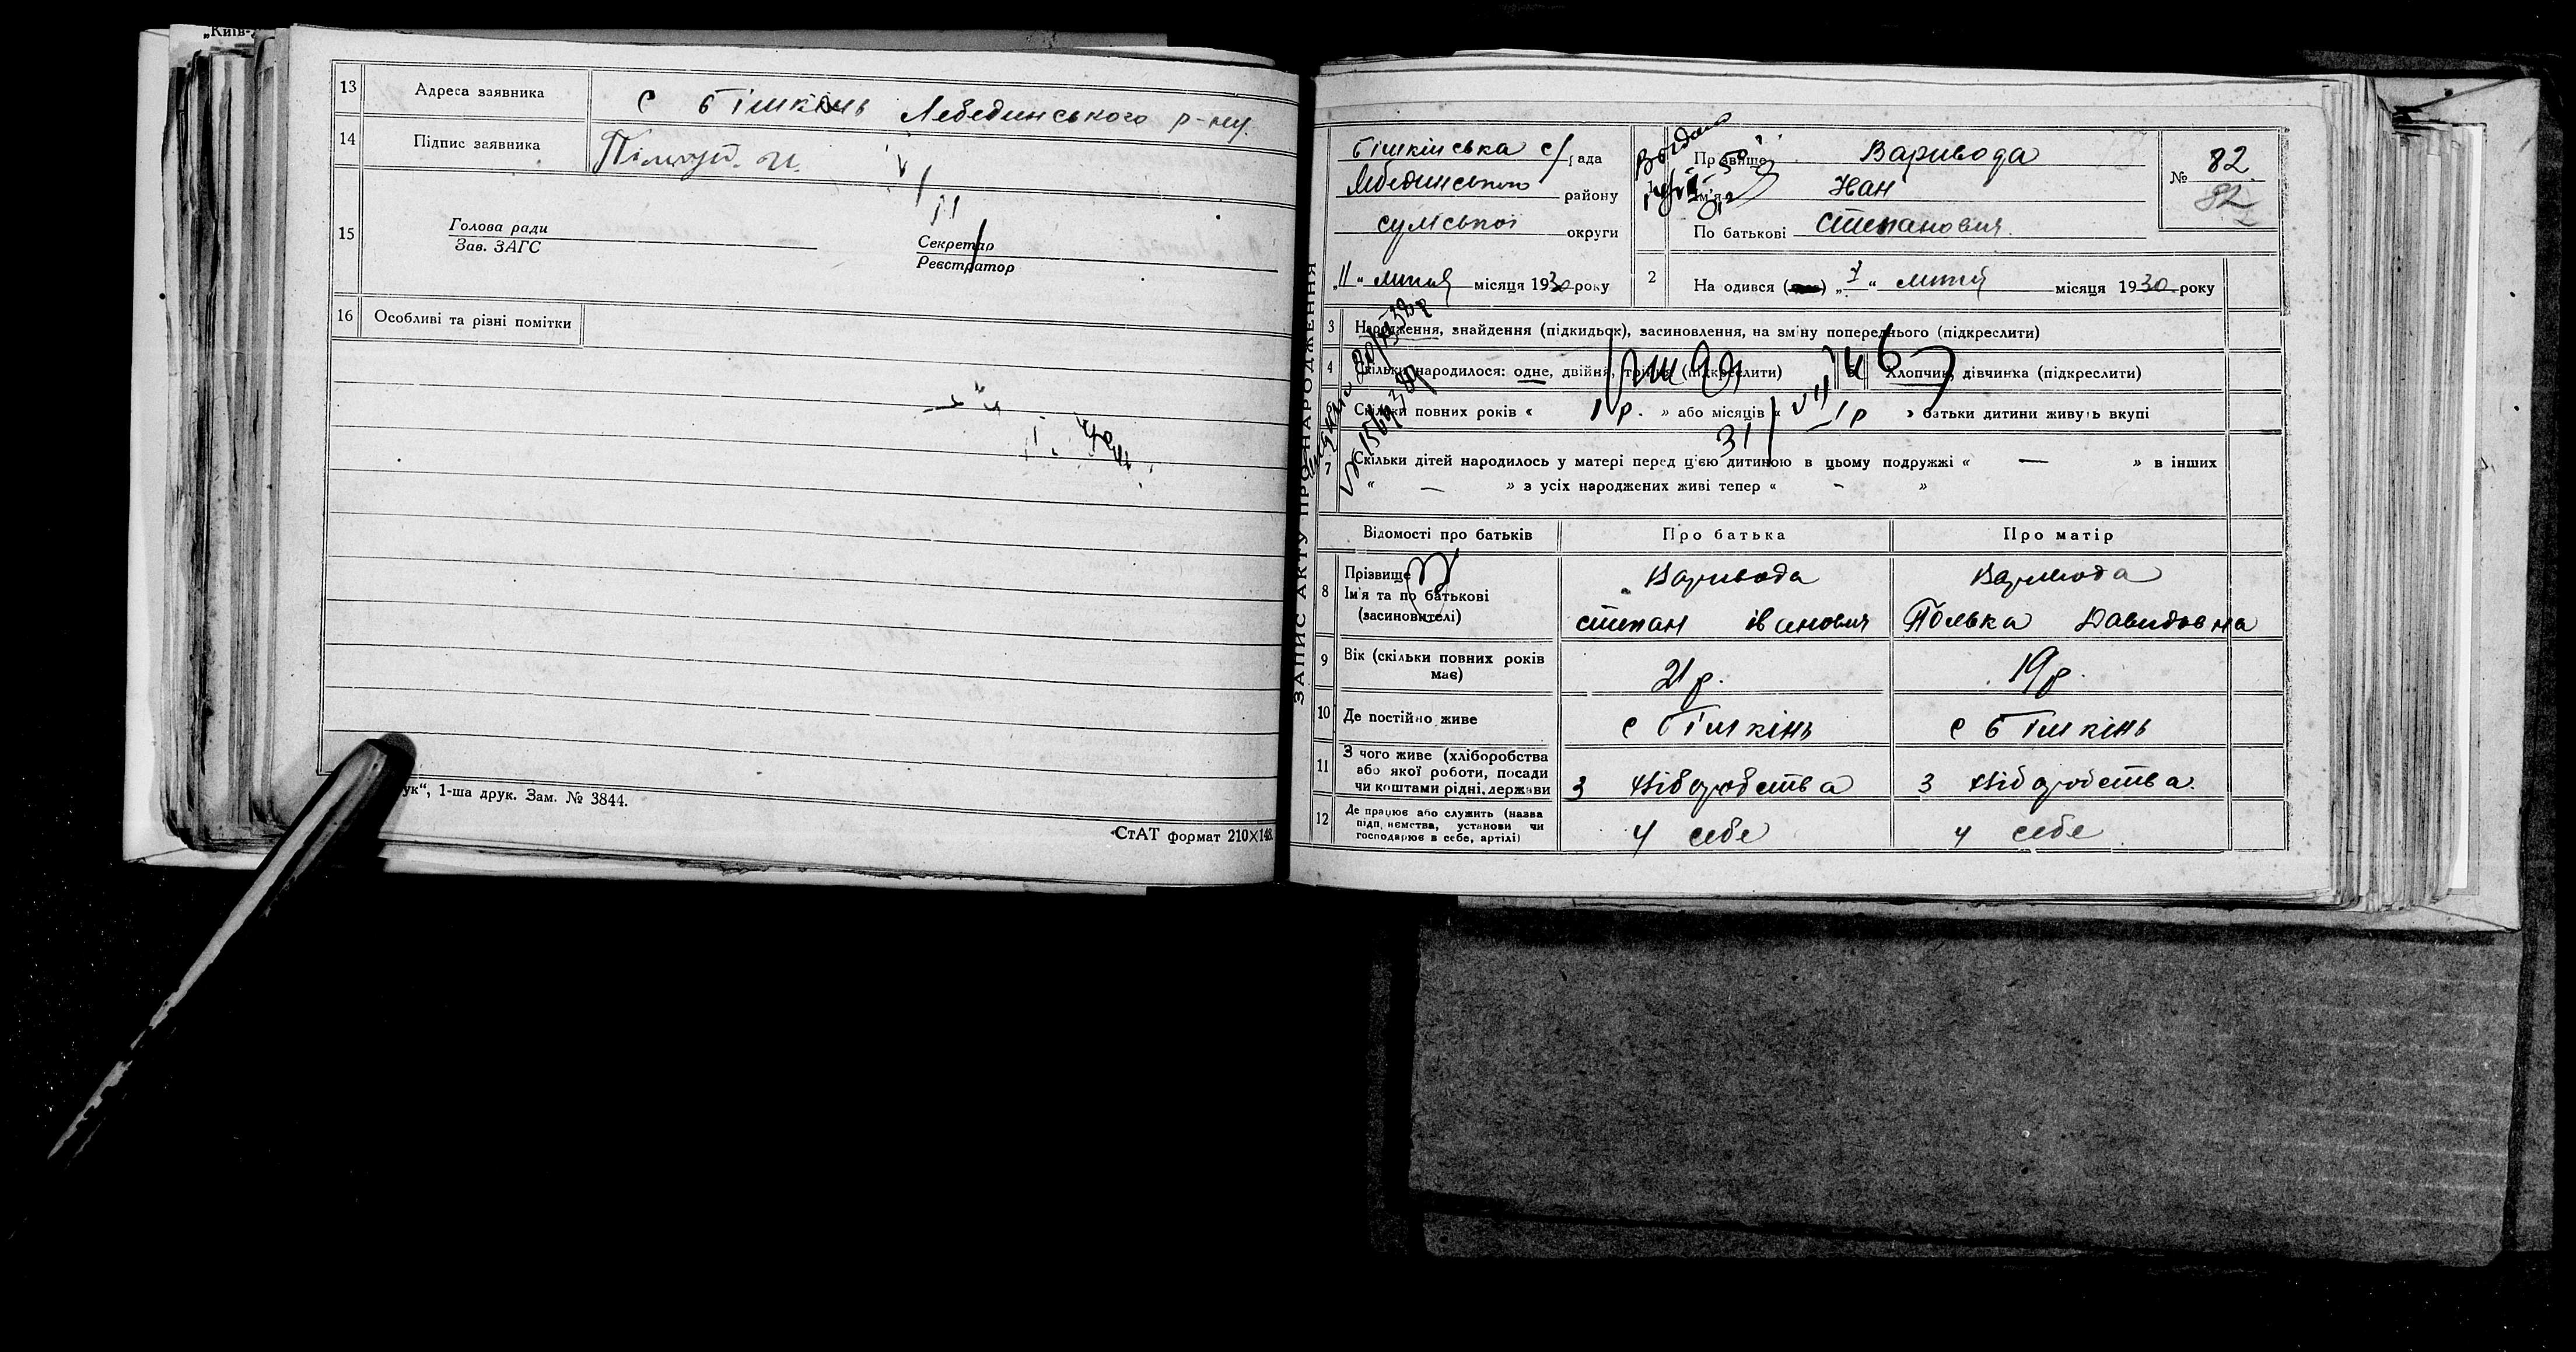 „Київ-
13 Адреса заявника С Бішкінь Лебединського р-ну.
14 Підпис заявника
15 Голова ради
Зав. ЗАГС
Секретар
Реєстратор
16 Особливі та різні помітки
ук“, 1-ша друк. Зам. № 3844.
СтАТ формат 210×148
ЗАПИС АКТУ ПРО НАРОДЖЕННЯ
Бішкінська с/рада
Лебединського району
Сумської округи
„11“ липня місяця 1930 року
1 Прізвище Варивода
Ім'я Іван
По батькові Степанович
№ 82
82
2 На одився „7“ липня місяця 1930 року
3 Народження, знайдення (підкидьок), засиновлення, на зміну попереднього (підкреслити)
4 Скільки народилося: одне, двійня, трійня (підкреслити) 5 Хлопчик, дівчинка (підкреслити)
6 Скільки повних років « 1 р. » або місяців « 1 р » батьки дитини живуть вкупі
31/VII
7 Скільки дітей народилось у матері перед цією дитиною в цьому подружжі « — » в інших
« — » з усіх народжених живі тепер « - »
Відомості про батьків Про батька Про матір
8 Прізвище Варивода Варивода
Ім'я та по батькові
(засновителі) Степан Іванович Полька Давидовна
9 Вік (скільки повних років має) 21 р. 19 р.
10 Де постійно живе с Бішкінь с Бішкінь
11 З чого живе (хліборобства
або якої роботи, посади
чи коштами рідні, держави з хліборобства з хліборобства
12 Де працює або служить (назва
підп, иємства, установи чи
господарює в себе, артілі) у себе у себе